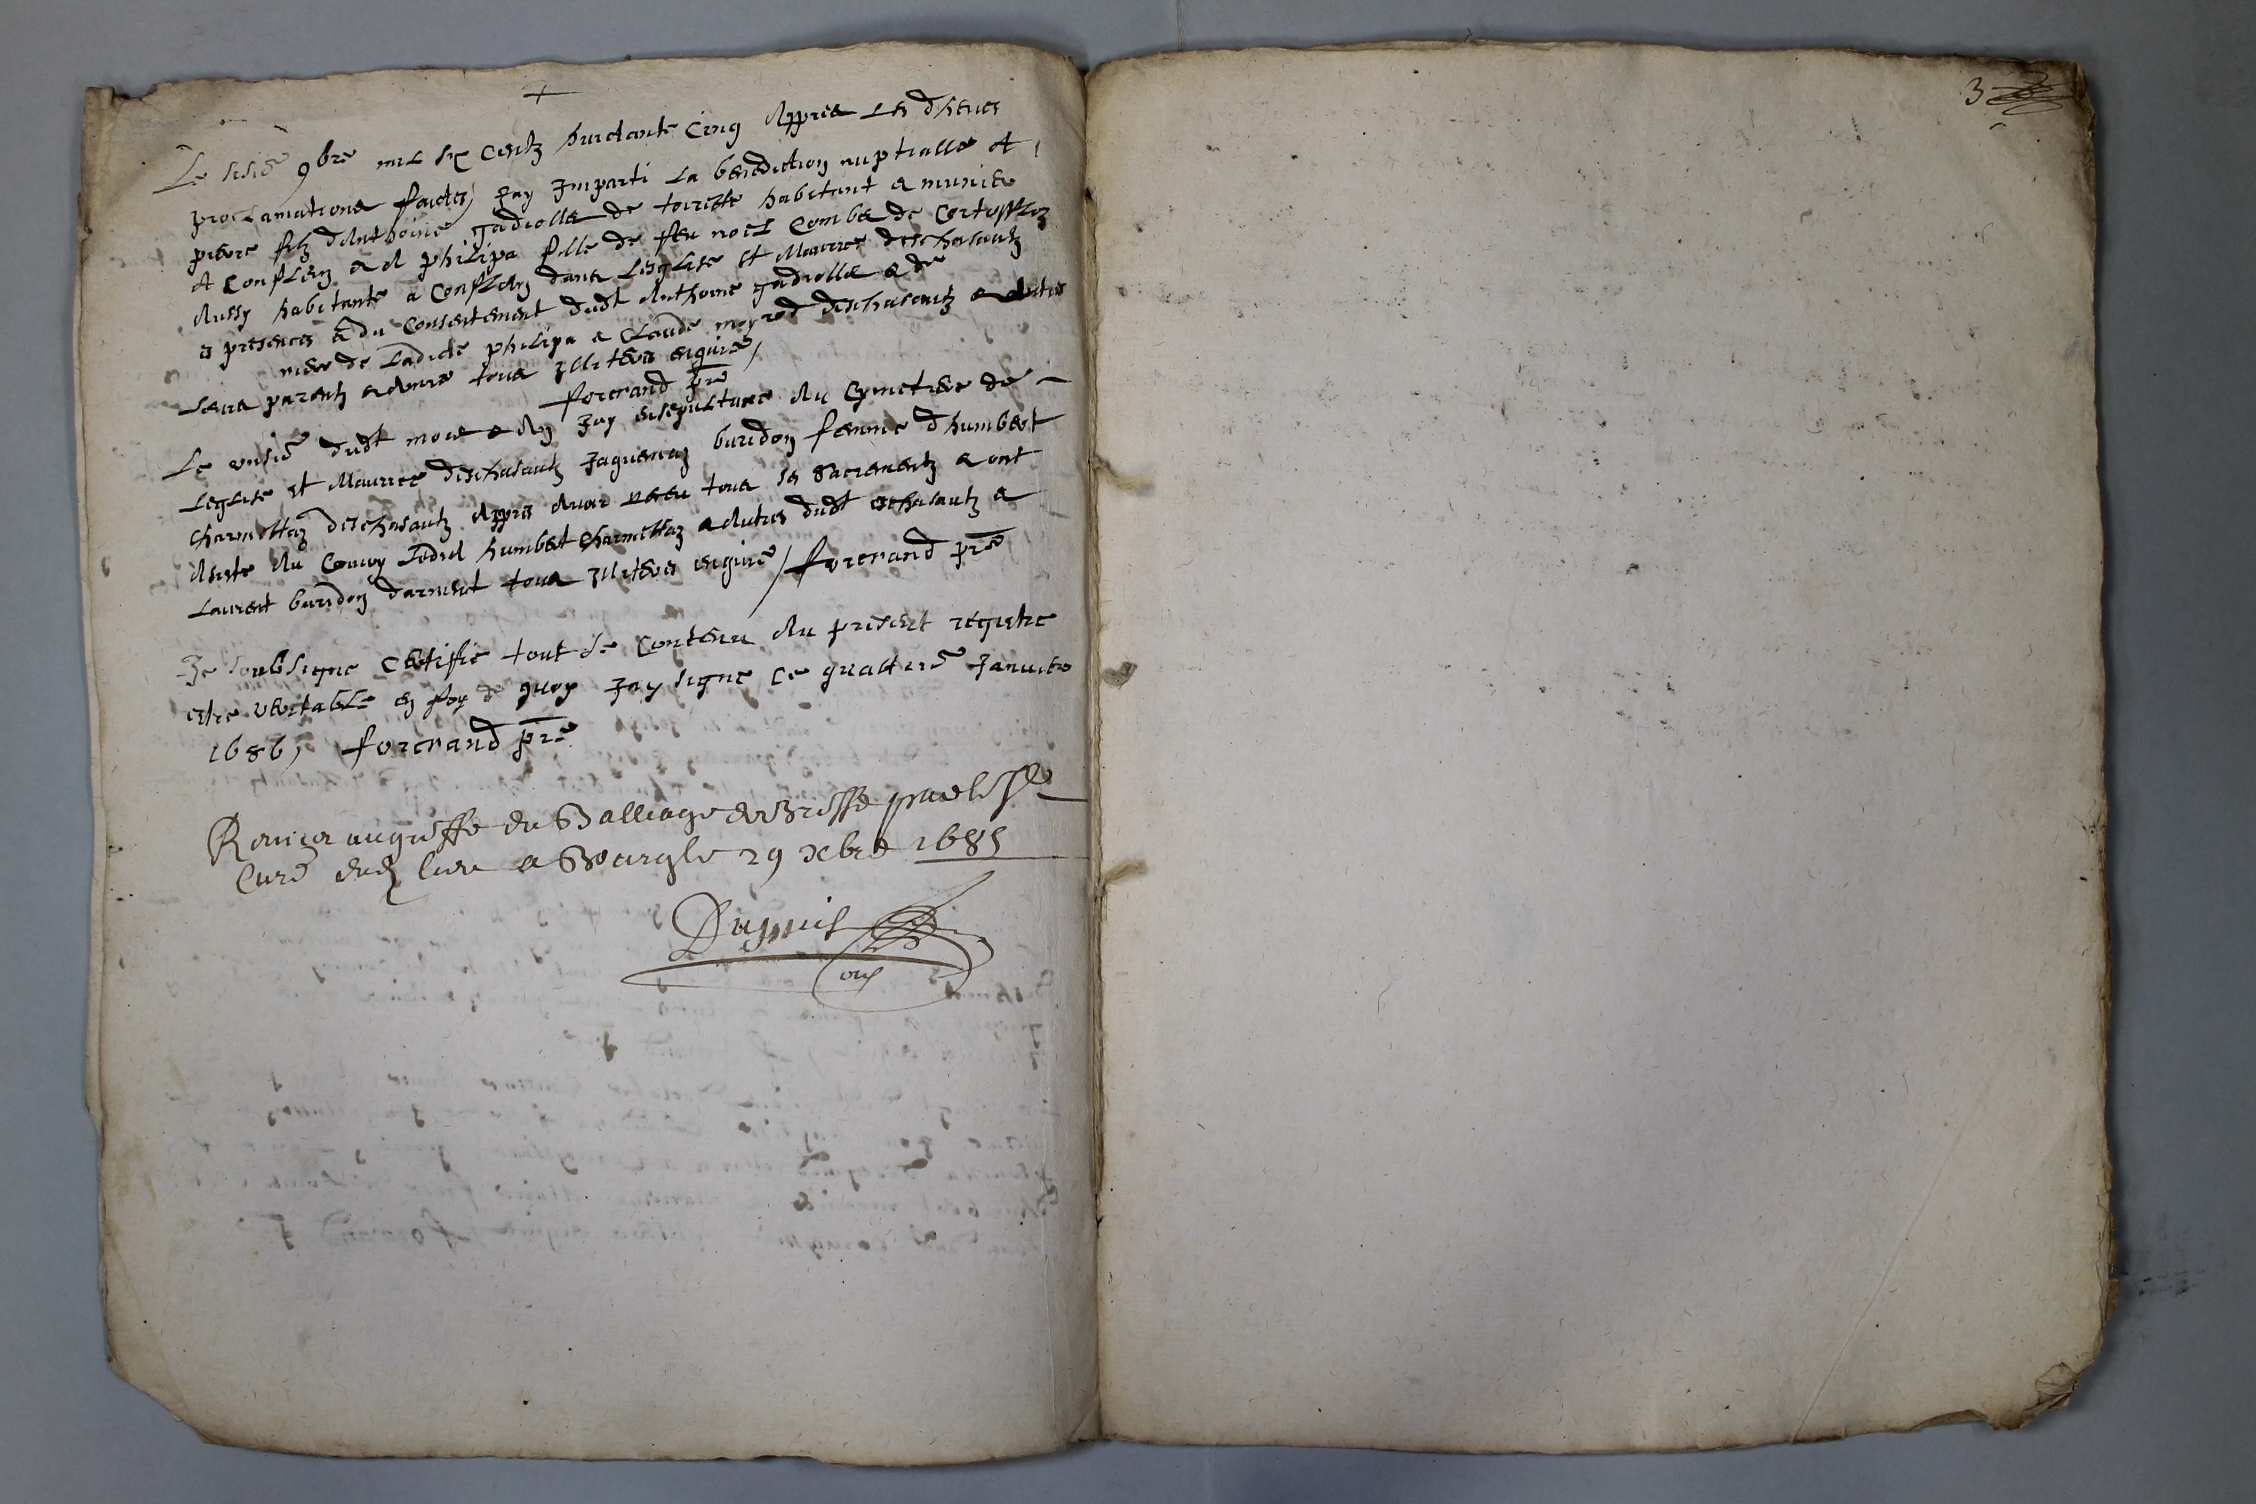 +
Le sisie 9bre mil six centz huictante cinq apprea les dheues
proclamationa faictes Jay Imparti la benediction nuptialle A
pierre filz danthoine gadiolla de torcste habitant a munier
A Conflens e A philipa fille de feu noel Comba de Cortoffloz
Aussy habitante a Conflens dans leglise st Maurice deschasautz
es presences & du Consentement dudt Anthoine gadiolla e de
mere de Ladicte philipa e Claude moyrod deschasautz e autres
Leurs parentz e amis tous Illiteres enquis
forcrand pre
Le unsie dudt mois e An Jay ensepulture Au Cymetiere de
Leglise st Maurice deschasautz Jaquemaz buridon femme dhumbert
Charmettaz deschasautz Appres Avoir receu tous les Sacrementz e ont
Asiste Au Convoy Ledict humbert Charmettaz e Autres dudt eschasautz e
Laurent buridon darment tous Illiteres enquis / forcrand pre
Je soubsigne Certifie tout le Contenu Au present registre
estre veritable en foy de quoy Jay signe ce quattrie Janvier
1686, forcrand pre
Remis au greffe du Balliage de Bresse par le Sr
Curé dud lieu a Bourg le 29 xbre 1685
Dupuis
3